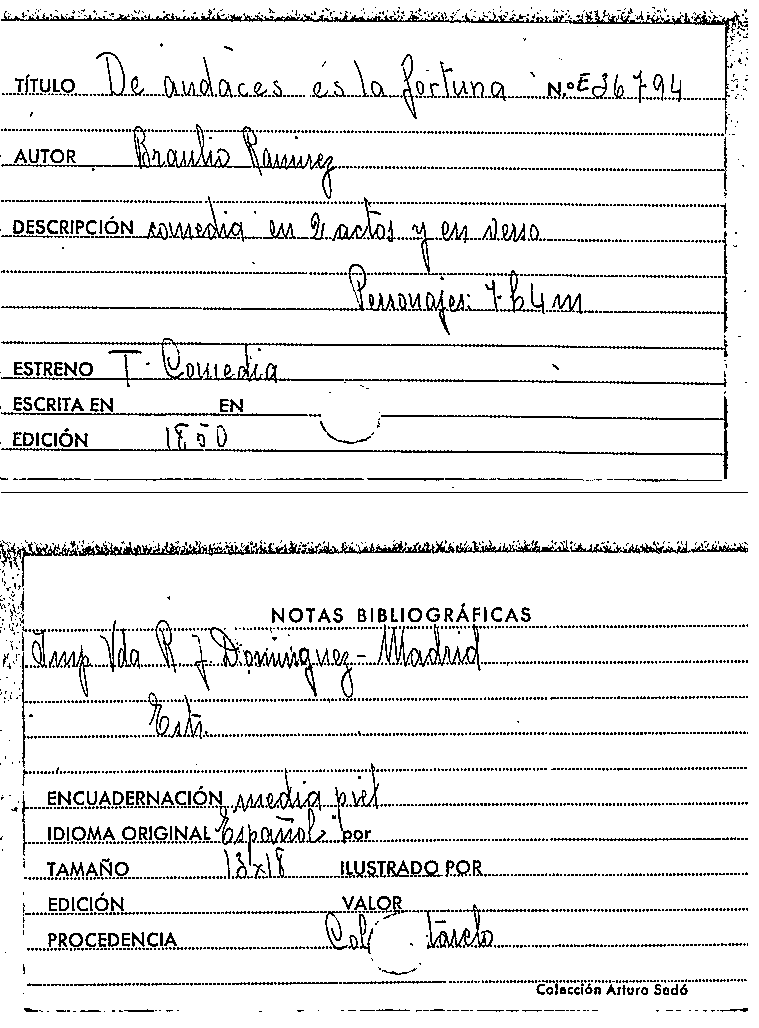 TÍTULO De audaces es la fortuna N.º E 36794
AUTOR Braulio Ramirez
DESCRIPCIÓN comedia en 2 actos y en verso
Personajes: 7 h 4 m
ESTRENO T. Comedia
ESCRITA EN EN
EDICIÓN 1850
NOTAS BIBLIOGRÁFICAS
Imp Vda R J Dominguez - Madrid
Estr.
ENCUADERNACIÓN media piel
IDIOMA ORIGINAL Español por
TAMAÑO 13x18 ILUSTRADO POR
EDICIÓN VALOR
PROCEDENCIA Col
Colección Arturo Sedó